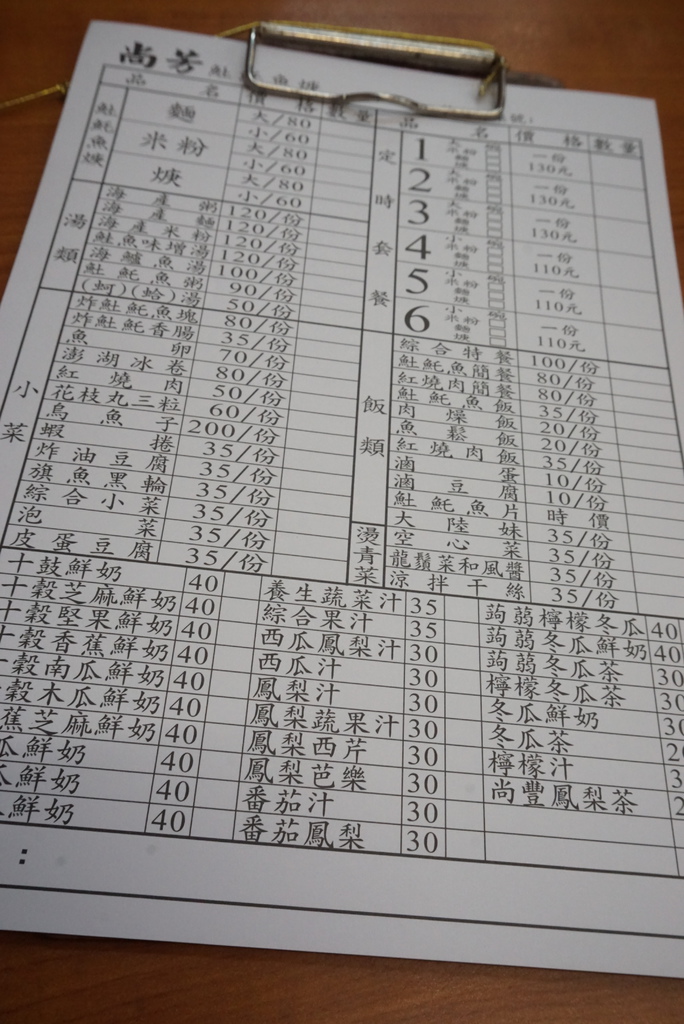 尚芳 魠 魚 焿
品 名 價 格 數量
魠魠魚焿
麵 大/80
小/60
米粉 大/80
小/60
焿 大/80
小/60
湯類
海產粥 120/份
海產麵 120/份
海產米粉 120/份
鮭魚味增湯 120/份
海鱸魚湯 100/份
魠魠魚粥 90/份
(蚵)(蛤)湯 50/份
小菜
炸魠魠魚塊 80/份
炸魠魠香腸 35/份
魚卵 70/份
澎湖冰卷 80/份
紅燒肉 50/份
花枝丸三粒 60/份
烏魚子 200/份
蝦捲 35/份
炸油豆腐 35/份
旗魚黑輪 35/份
綜合小菜 35/份
泡菜 35/份
皮蛋豆腐 35/份
號:
品 名 價 格 數量
定時套餐
1 大 米粉 麵 焿 碗 一份 130元
2 大 米粉 麵 焿 碗 一份 130元
3 大 米粉 麵 焿 碗 一份 130元
4 小 米粉 麵 焿 碗 一份 110元
5 小 米粉 麵 焿 碗 一份 110元
6 小 米粉 麵 焿 碗 一份 110元
飯類
綜合特餐 100/份
魠魠魚簡餐 80/份
紅燒肉簡餐 80/份
魠魠魚飯 35/份
肉燥飯 20/份
魚鬆飯 20/份
紅燒肉飯 35/份
滷蛋 10/份
滷豆腐 10/份
魠魠魚片 時價
燙青菜
大陸妹 35/份
空心菜 35/份
龍鬚菜和風醬 35/份
涼拌干絲 35/份
十鼓鮮奶 40
十穀芝麻鮮奶 40
十穀堅果鮮奶 40
十穀香蕉鮮奶 40
十穀南瓜鮮奶 40
穀木瓜鮮奶 40
蕉芝麻鮮奶 40
瓜鮮奶 40
瓜鮮奶 40
鮮奶 40
養生蔬菜汁 35
綜合果汁 35
西瓜鳳梨汁 30
西瓜汁 30
鳳梨汁 30
鳳梨蔬果汁 30
鳳梨西芹 30
鳳梨芭樂 30
番茄汁 30
番茄鳳梨 30
蒟蒻檸檬冬瓜 40
蒟蒻冬瓜鮮奶 40
蒟蒻冬瓜茶 30
檸檬冬瓜茶 30
冬瓜鮮奶 30
冬瓜茶 2
檸檬汁 3
尚豐鳳梨茶 2
: